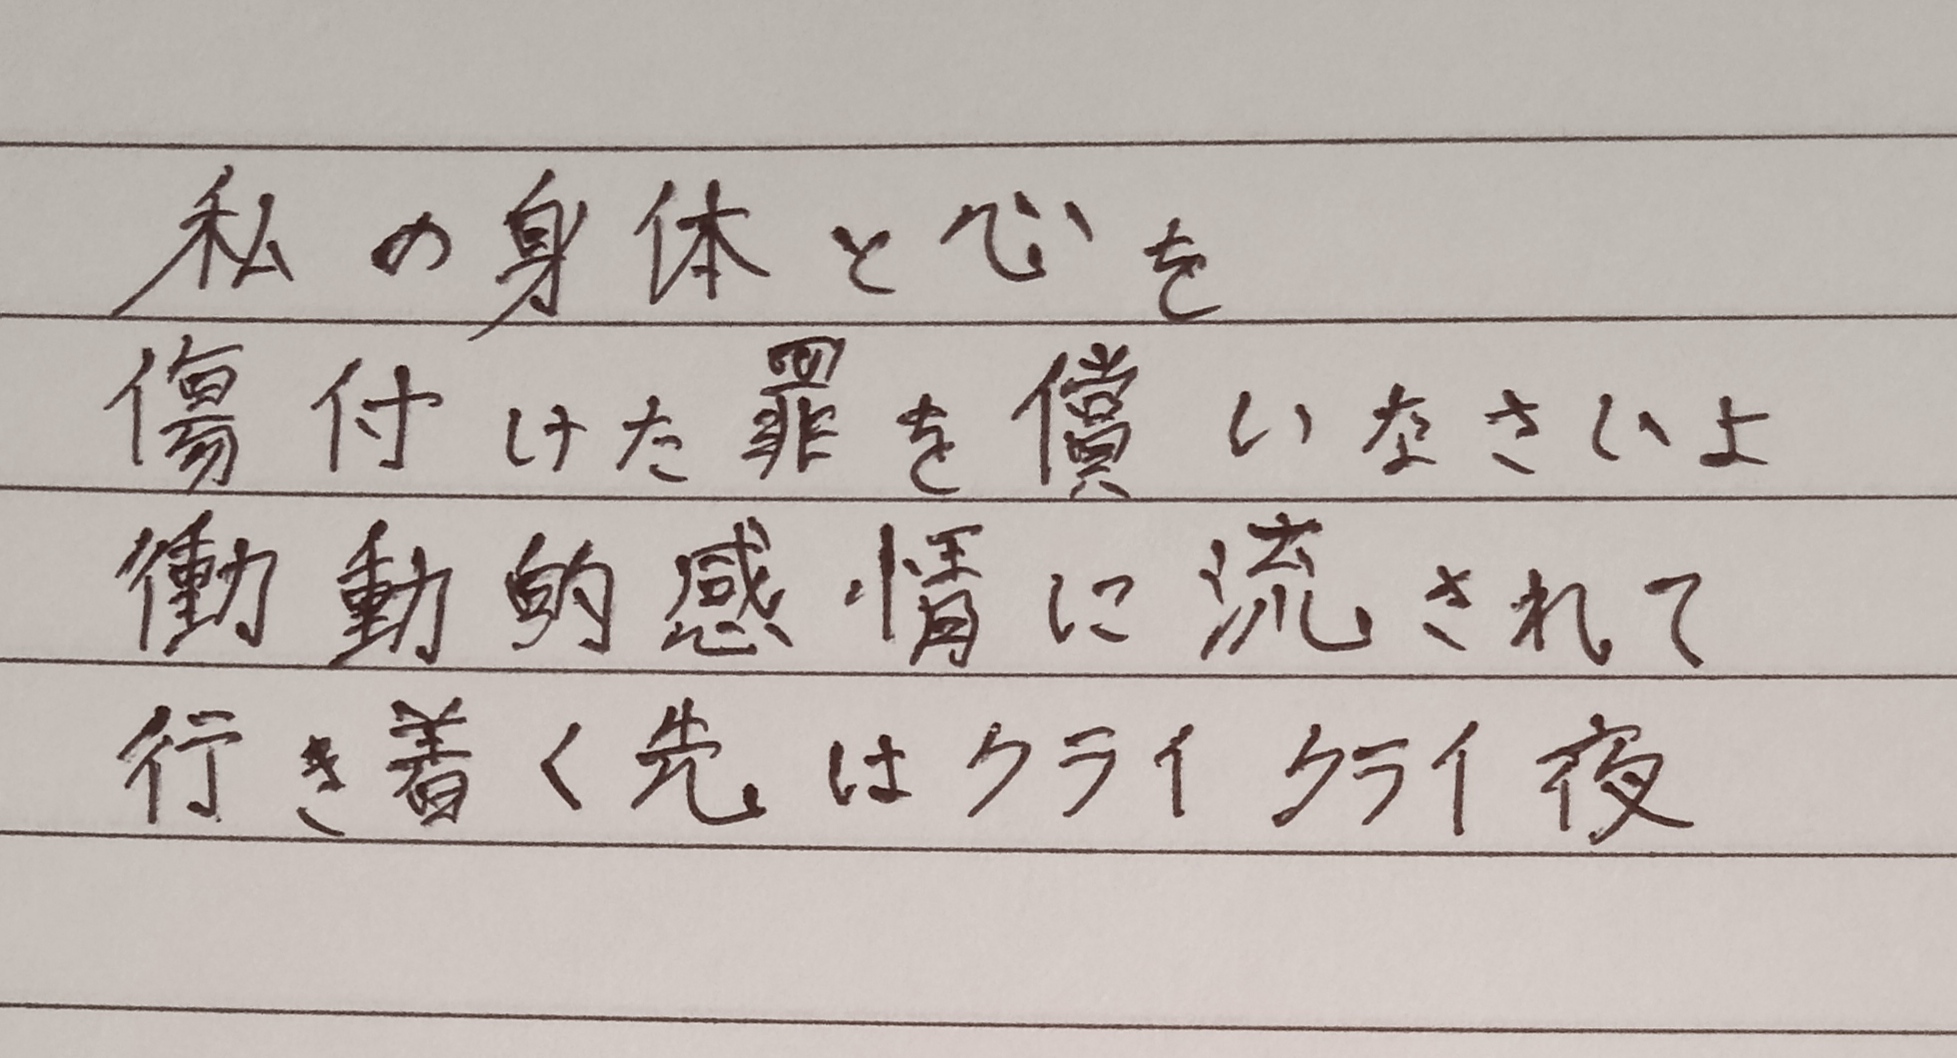 私の身体と心を
傷付けた罪を償いなさいよ
働動的感情に流されて
行き着く先はクライクライ夜